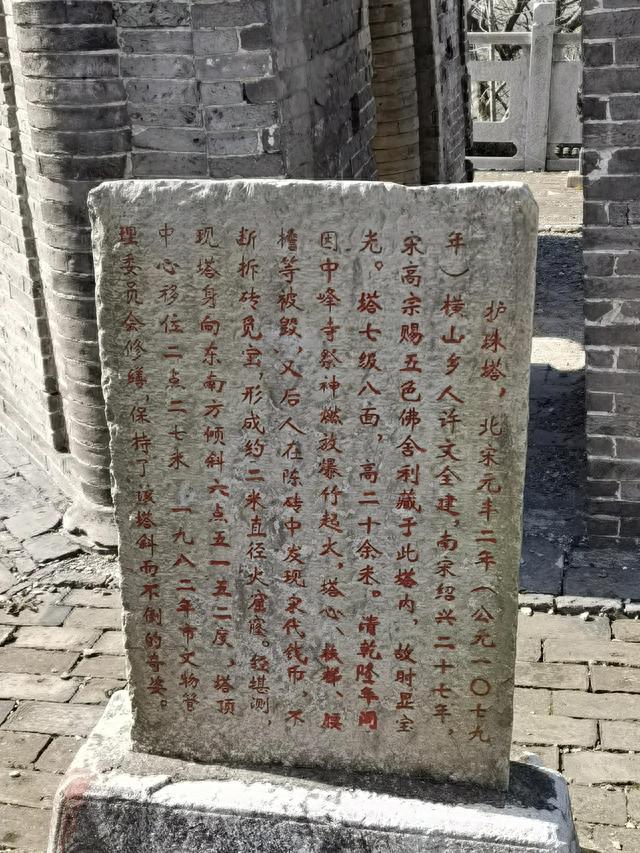 护珠塔，北宋元丰二年（公元一〇七九
年）横山乡人许文全建，南宋绍兴二十七年，
宋高宗赐五色佛舍利藏于此塔内，故时显宝
光。塔七级八面，高二十余米。清乾隆年间
因中峰寺祭神燃放爆竹起火，塔心、扶梯、腰
檐等被毁，又后人在陈砖中发现宋代钱币，不
断拆砖觅宝，形成约二米直径火窟窿。经堪测，
现塔身向东南方倾斜六点五一五二度，塔顶
中心移位二点二七米 一九八二年市文物管
理委员会修缮，保持了该塔斜而不倒的奇姿。